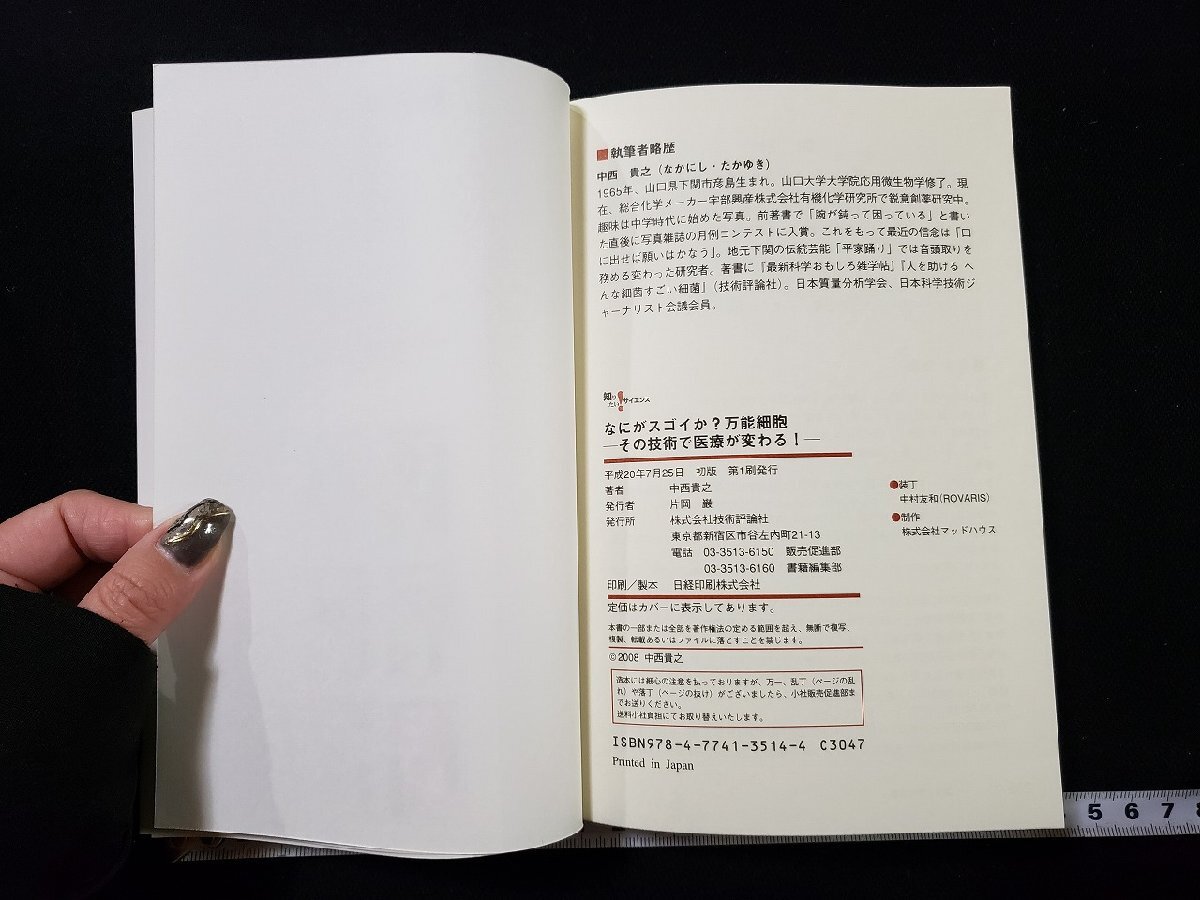 ■執筆者略歴
中西 貴之(なかにし・たかゆき)
1965年、山口県下関市彦島生まれ。山口大学大学院応用微生物学修了。現
在、総合化学メーカー宇部興産株式会社有機化学研究所で鋭意創薬研究中。
趣味は中学時代に始めた写真。前著書で「腕が鈍って困っている」と書い
た直後に写真雑誌の月例コンテストに入賞。これをもって最近の信念は「口
に出せば願いはかなう」。地元下関の伝統芸能「平家踊り」では音頭取りを
務める変わった研究者。著書に『最新科学おもしろ雑学帖』『人を助ける へ
んな細菌すごい細菌』(技術評論社)。日本質量分析学会、日本科学技術ジ
ャーナリスト会議会員。
知りたい!サイエンス
なにがスゴイか?万能細胞
―その技術で医療が変わる!―
平成20年7月25日 初版 第1刷発行
著者 中西貴之
発行者 片岡 巌
発行所 株式会社技術評論社
東京都新宿区市谷左内町21-13
電話 03-3513-6150 販売促進部
03-3513-6160 書籍編集部
印刷/製本 日経印刷株式会社
●装丁
中村友和(ROVARIS)
●制作
株式会社マッドハウス
定価はカバーに表示してあります。
本書の一部または全部を著作権法の定める範囲を超え、無断で複写、
複製、転載あるいはファイルに落とすことを禁じます。
©2008 中西貴之
造本には細心の注意を払っておりますが、万一、乱丁(ページの乱
れ)や落丁(ページの抜け)がございましたら、小社販売促進部ま
でお送りください。
送料小社負担にてお取り替えいたします。
ISBN978-4-7741-3514-4 C3047
Printed in Japan
5 6 7 8